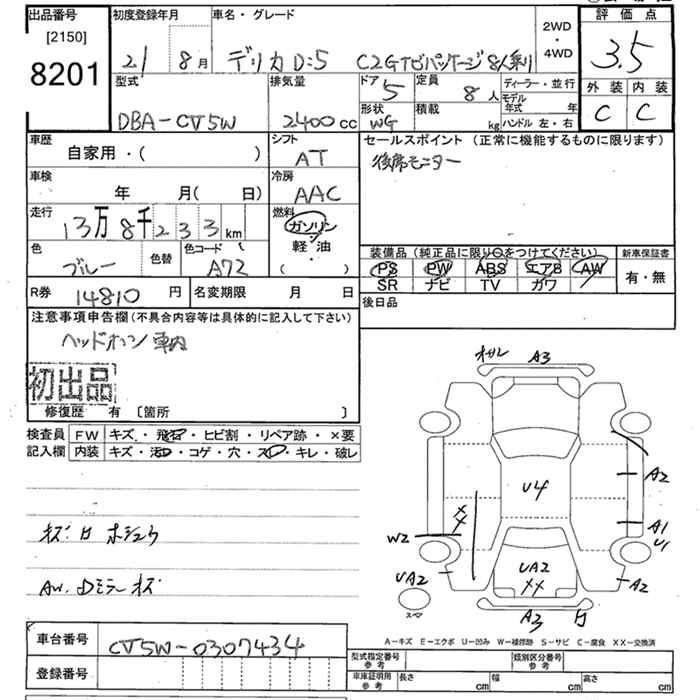 出品番号
[2150]
8201
初度登録年月
21 年 8月
車名・グレード
デリカD:5 C2Gナビパッケージ 8人乗り
2WD
・
4WD
評価点
3.5
外装 内装
C C
型式
DBA-CV5W
排気量
2400cc
ドア
5
定員
8人
形状
WG
積載
kg
ディーラー・並行
モデル
年式 年
ハンドル 左・右
車歴
自家用・( )
シフト
AT
車検
年 月( 日)
冷房
AAC
走行
13万8千233km
燃料
ガソリン
軽油
( )
色
ブルー
色替
色コード
A72
セールスポイント (正常に機能するものに限ります)
後席モニター
装備品(純正品に限り○をつけてください)
PS PW ABS エアB AW
SR ナビ TV ガワ
新車保証書
有・無
R券
14810円
名変期限 月 日
後日品
注意事項申告欄(不具合内容等は具体的に記入して下さい)
ヘッドホン 車内
初出品
修復歴 有 〔箇所 〕
検査員
記入欄
FW キズ・飛石・ヒビ割・リペア跡・×要
内装 キズ・汚れ・コゲ・穴・スレ・キレ・破レ
AW. Dミラー キズ
A3
A2
U4
A1
U1
W2
××
UA2
UA2
××
A2
A3
スペア
A-キズ E-エクボ U-凹み W-補修跡 S-サビ C-腐食 XX-交換済
車台番号
CV5W-0307434
登録番号
型式指定番号
参考
類別区分番号
参考
車庫証明用
参考
長さ cm
幅 cm
高さ cm